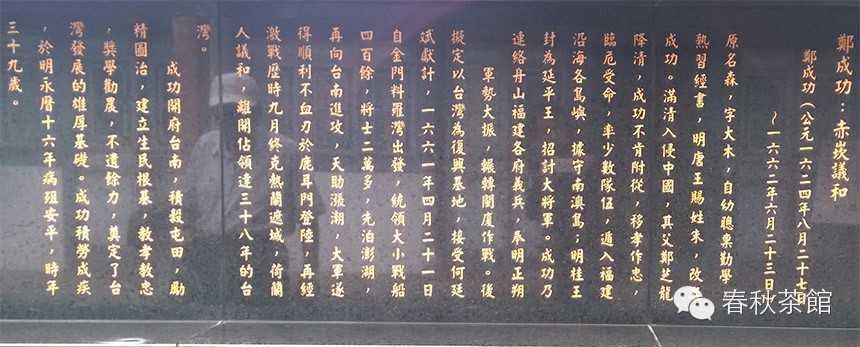 鄭成功：赤崁議和
鄭成功（公元一六二四年八月二十七日
～一六六二年六月二十三日）
原名森，字大木，自幼聰稟勤學
熟習經書，明唐王賜姓朱，改名
成功。滿清入侵中國，其父鄭芝龍
降清，成功不肯附從，移孝作忠，
臨危受命，率少數隊伍，遁入福建
沿海各島嶼，據守南澳島；明桂王
封為延平王，招討大將軍。成功乃
連絡舟山福建各府義兵，奉明正朔
軍勢大振，輾轉閩廈作戰。後
擬定以台灣為復興基地，接受何廷
斌獻計，一六六一年四月二十一日
自金門料羅灣出發，統領大小戰船
四百餘，將士二萬多，先泊澎湖，
再向台南進攻，天助漲潮，大軍遂
得順利不血刃於鹿耳門登陸，再經
激戰歷時九月終克熱蘭遮城，荷蘭
人議和，離開佔領達三十八年的台
灣。
成功開府台南，積穀屯田，勵
精圖治，建立生民根基，教孝教忠
，獎學勸農，不遺餘力，奠定了台
灣發展的雄厚基礎。成功積勞成疾
，於明永曆十六年病殂安平，時年
三十九歲。
春秋茶館